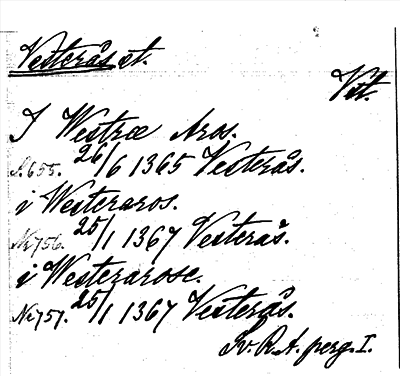 Vesterås st.
Vstm.
I Westræ Aros.
S. 655. 26/6 1365 Vesterås.
i Westeraros.
Nr 756. 25/1 1367 Vesterås.
i Westerarose.
Nr 757. 25/1 1367 Vesterås.
Sv. R. A. perg. I.